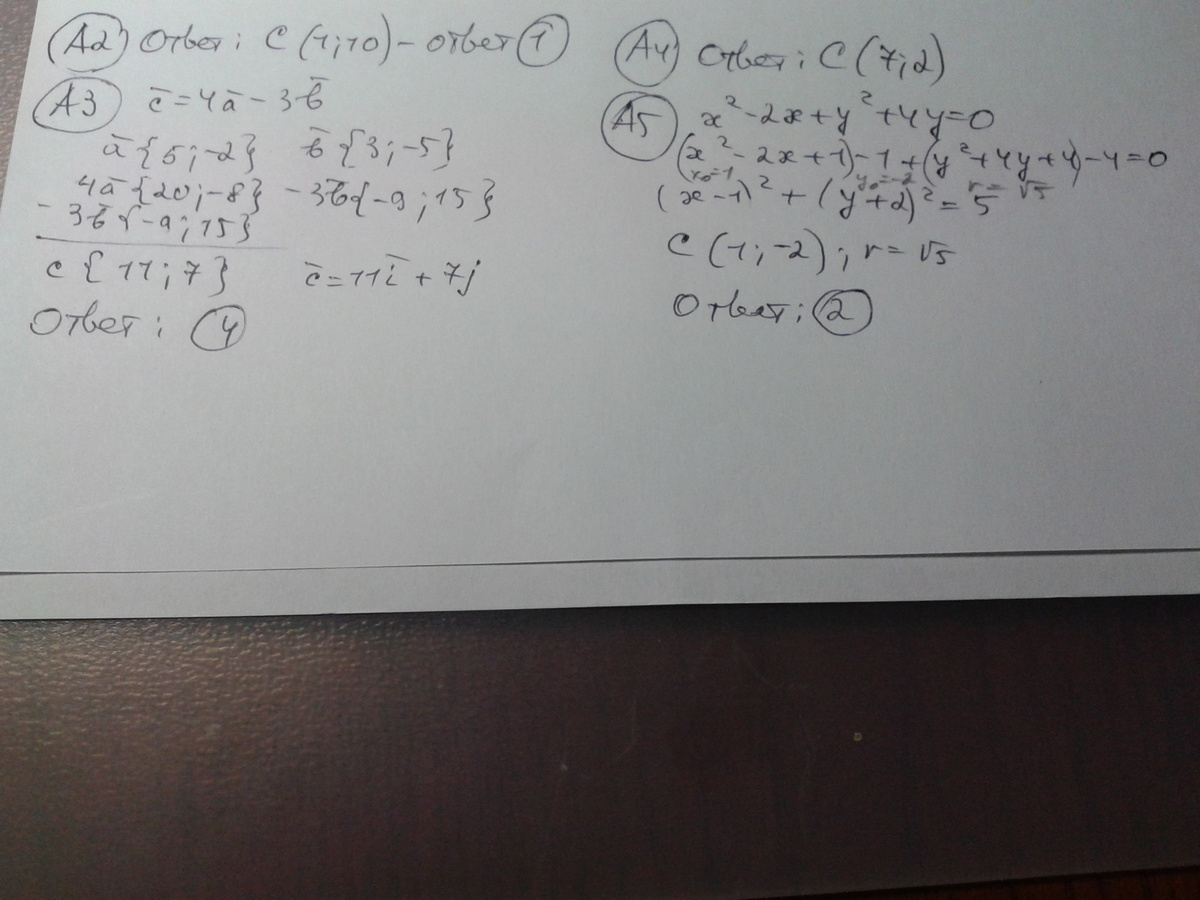 А2 Ответ: С (1;10) – ответ 1
А3 c̄ = 4ā – 3b̄
ā {5; –2} b̄ {3; –5}
4ā {20; –8} –3b̄ {–9; 15}
– 3b̄ {–9; 15}
c {11; 7} c̄ = 11ī + 7j
Ответ: 4
А4 Ответ: С (7; 2)
А5 x² – 2x + y² + 4y = 0
(x² – 2x + 1) – 1 + (y² + 4y + 4) – 4 = 0
x₀ = 1 y₀ = –2 r = √5
(x – 1)² + (y + 2)² = 5
С (1; –2); r = √5
Ответ: 2